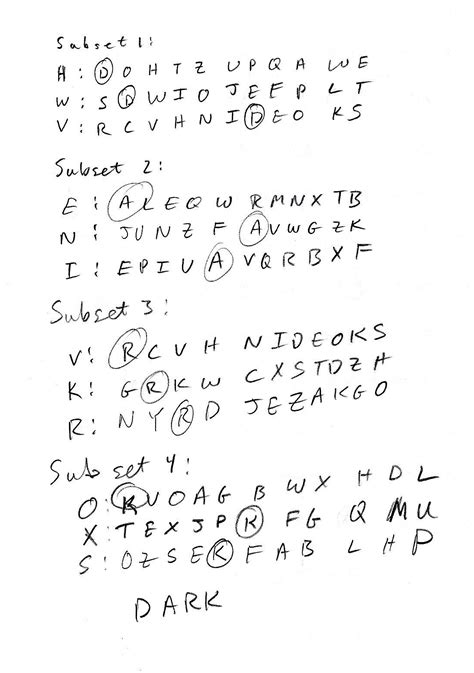 Subset 1:
H: D O H T Z U P Q A W E
W: S D W I O J E F P L T
V: R C V H N I D E O K S
Subset 2:
E: A L E Q W R M N X T B
N: J U N Z F A V W G Z K
I: E P I U A V Q R B X F
Subset 3:
V: R C V H N I D E O K S
K: G R K W C X S T D Z H
R: N Y R D J E Z A K G O
Subset 4:
O: K V O A G B W X H D L
X: T E X J P K F G Q M U
S: O Z S E K F A B L H P
DARK